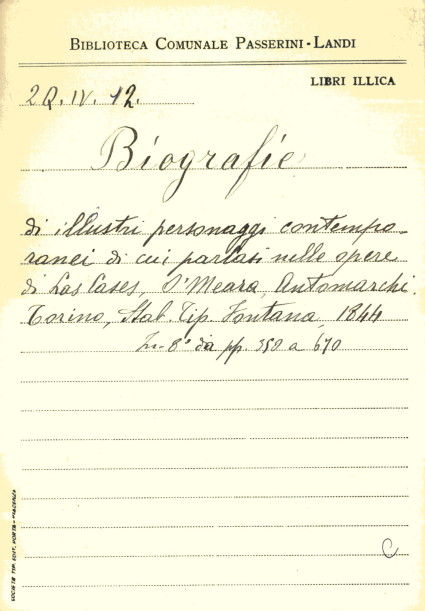 BIBLIOTECA COMUNALE PASSERINI-LANDI
LIBRI ILLICA
2Q. IV. 12.
Biografie
di illustri personaggi contempo-
ranei di cui parlasi nelle opere
di Las Cases, O'Meara, Antomarchi.
Torino, Stab. Tip. Fontana, 1844
In-8° da pp. 350 a 670
C
SOCIETÀ TIP. EDIT. PORTA - PIACENZA